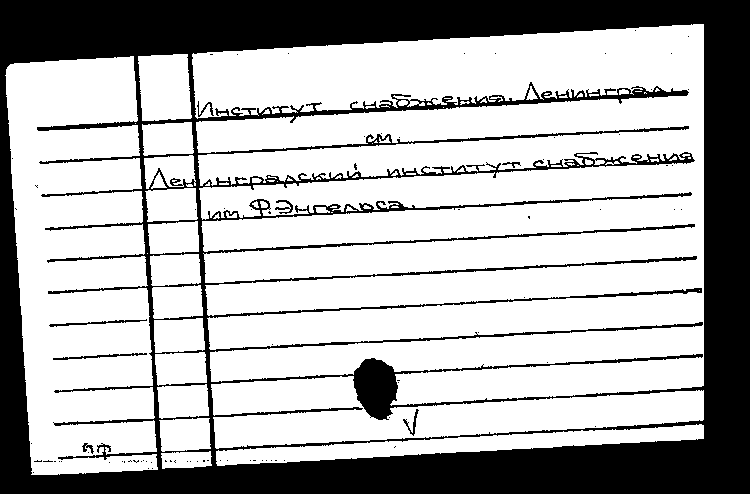 Институт снабжения. Ленинград.
см.
Ленинградский институт снабжения
им. Ф. Энгельса.
пф